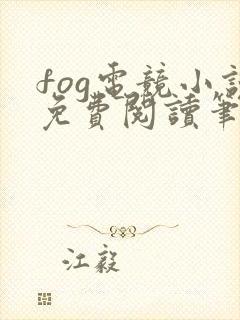 fog電競小說
免費閱讀筆
江毅